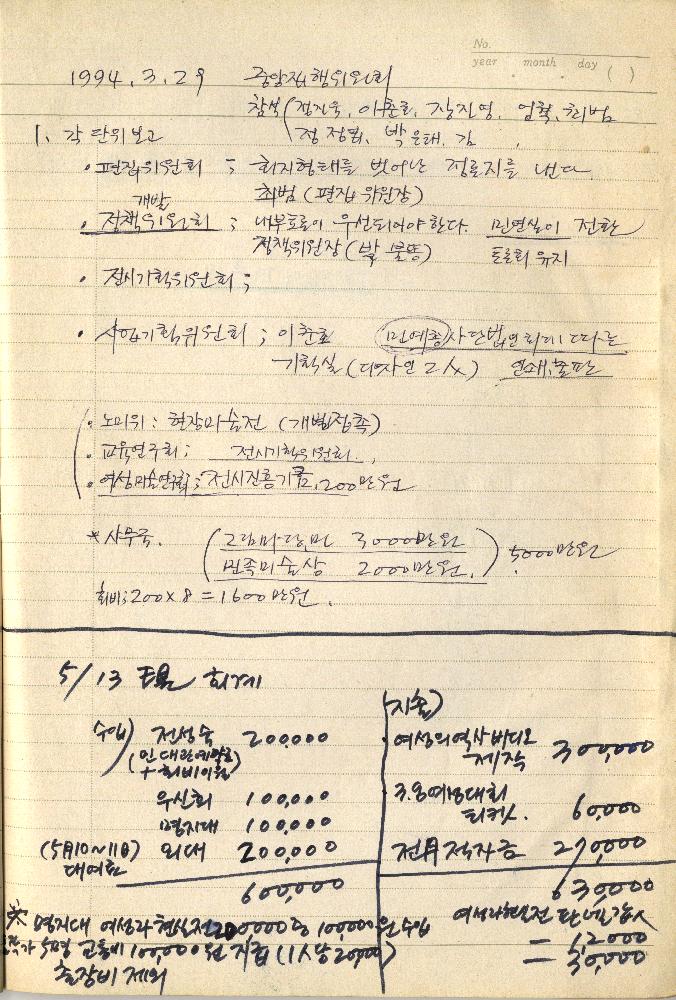 No.
year month day ( )
1994. 3. 29 중앙집행위원회
참석 ( 정진욱, 이춘호, 장진영, 엄혁, 최범
정정엽, 박은태, 김 ,
1. 각 단위 보고
· 편집위원회 ; 회지형태를 벗어난 정론지를 낸다.
최범 (편집위원장)
개발
· 정책위원회 ; 내부토론이 우선되어야 한다. 민연실이 전환
정책위원장 (박불똥) 토론회 유지
· 전시기획위원회 ;
· 사업기획위원회 ; 이춘호 민예총 사단법인화에 따른
기획실 (디자인 2人) 연대, 출판
· 노미위 : 현장미술전 (개별접촉)
· 교육연구회 ; 전시기획위원회.,
· 여성미술연구회 ; 전시진흥기금, 200만원
* 사무국. ( 그림마당.민 3000만원
민족미술상 2000만원. ) 5000만원
회비; 200 x 8 = 1600만원.
5/13 회계
수입) 전성숙 200,000
(민
+ 회비
우신회 100,000
명지대 100,000
(5月10~11日) 외대 200,000
대여료
600,000
지출)
여성의 역사 비디오
제작 300,000
3.8 여성대회
티켓. 60,000
전月 적자금 270,000
630,000
※ 명지대 여성과 현실전 200000 중 100,000원 수입
작가 5명 교통비 100,000원 지급 (1人당 20,000)
출장비 제외
여성과 현실전
= 62000
= 30,000